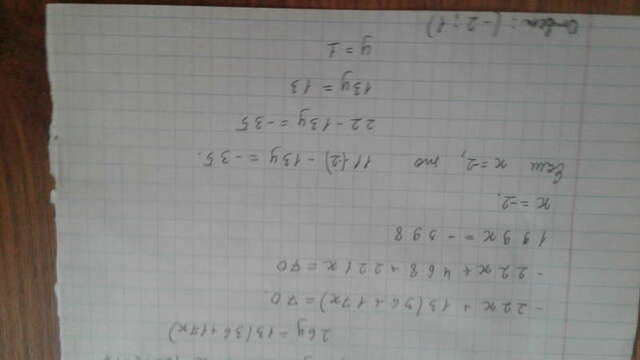 26y = 13(36+17x)
-22x + 13(36+17x) = 70.
-22x + 468 + 221x = 70
199x = -398
x = -2.
Если x = -2, то 11(-2) - 13y = -35.
22 - 13y = -35
13y = 13
y = 1
Ответ: (-2; 1)